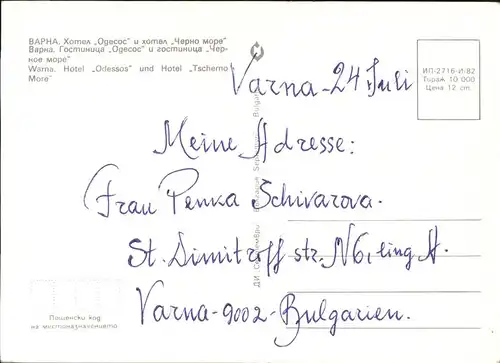 ВАРНА. Хотел „Одесос" и хотел „Черно море"
Варна. Гостиница „Одесос" и гостиница „Чер-
ное море"
Warna. Hotel „Odessos" und Hotel „Tscherno
More"
ИП-2716-И-82
Тираж 10 000
Цена 12 ст.
Varna - 24 Juli
Meine Adresse:
Frau Penka Schivarova.
St. Dimitroff str. N6, eing A.
Varna - 9002 - Bulgarien.
Пощенски код
на местоназначението